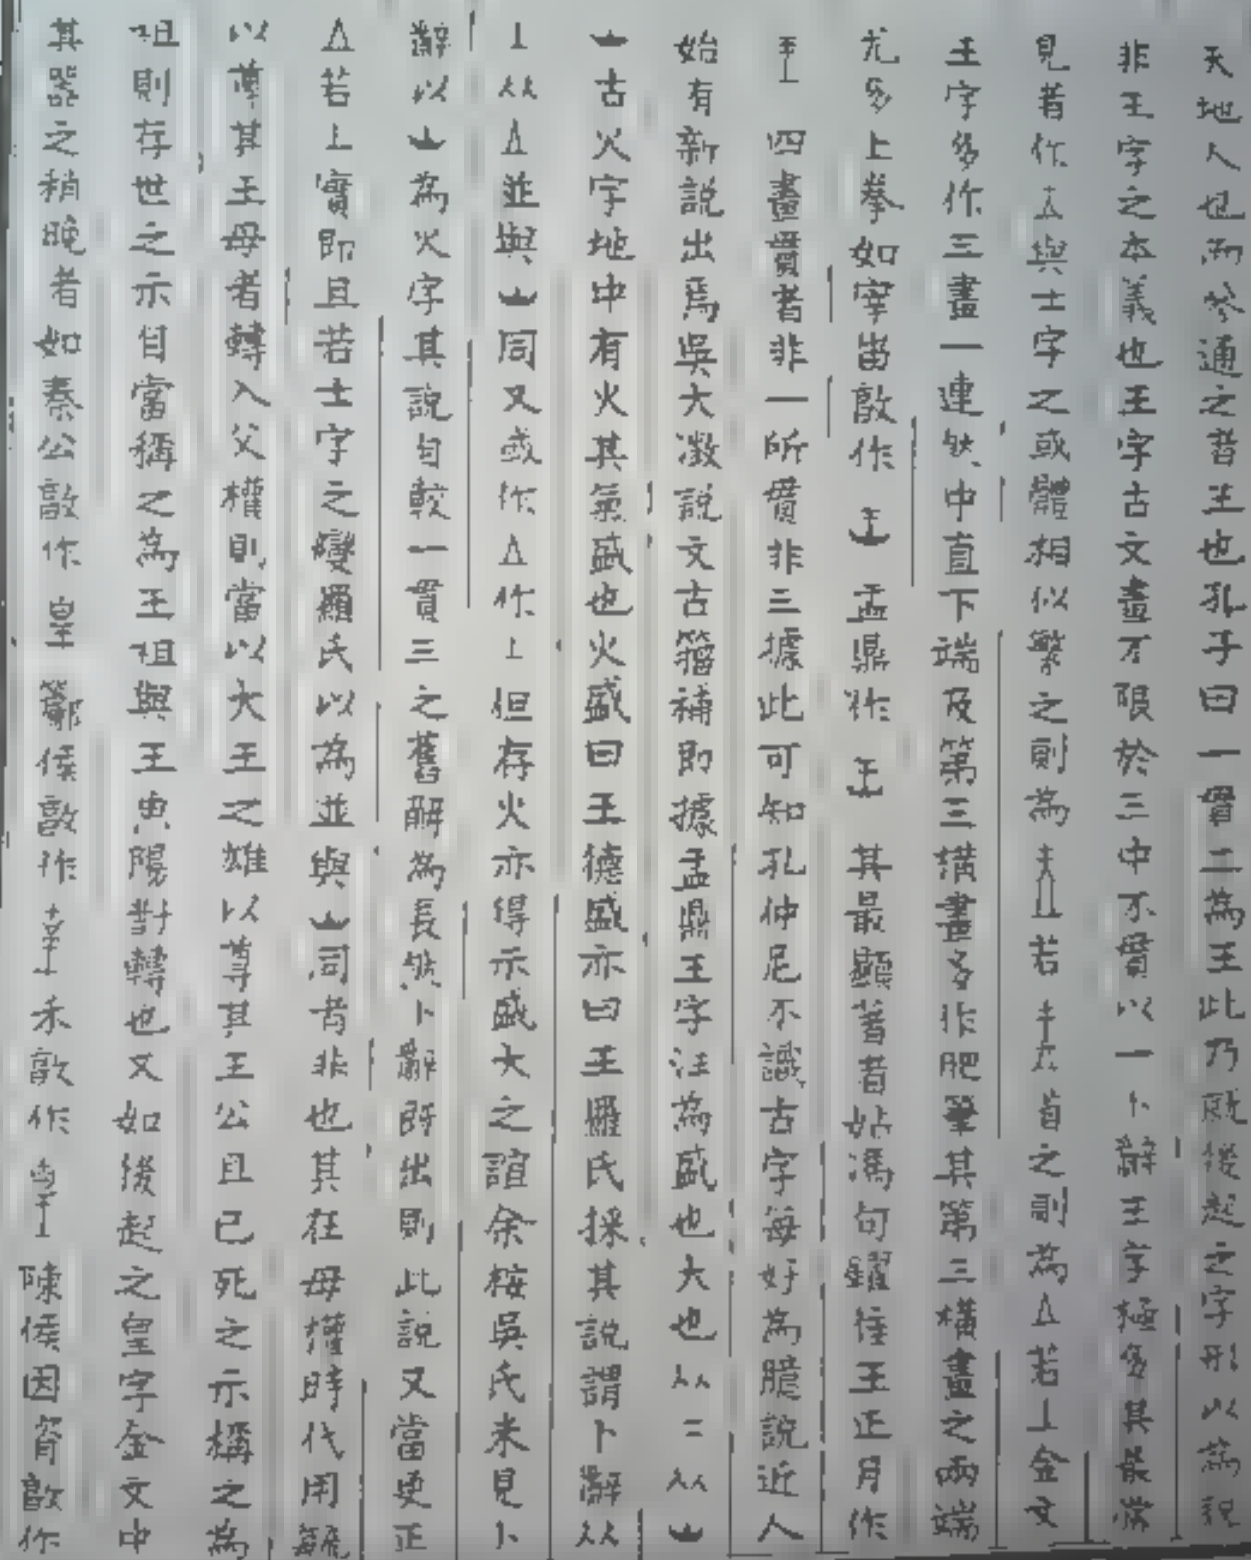 天地人也而參通之者王也孔子曰一貫三為王此乃就後起之字形以為說
非王字之本義也王字古文畫不限於三中不貫以一卜辭王字極多其最常
見者作與士字之或體相似繁之則為若省之則為△若⊥金文
王字多作三畫一連然中直下端及第三橫畫多作肥筆其第三橫畫之兩端
尤多上拳如宰甾敦作盂鼎作其最顯著者姑馮句鑃隹王正月作
四畫貫者非一所貫非三據此可知孔仲尼不識古字每好為臆說近人
始有新說出焉吳大澂說文古籀補即據盂鼎王字注為盛也大也从二从
古火字地中有火其氣盛也火盛曰王德盛亦曰王羅氏採其說謂卜辭从
⊥从△並與同又或作△作⊥但存火亦得示盛大之誼余按吳氏未見卜
辭以為火字其說自較一貫三之舊解為長然卜辭既出則此說又當更正
△若⊥實即且若士字之變羅氏以為並與同者非也其在母權時代用毓
以尊其王母者轉入父權則當以大王之雄以尊其王公且已死之示稱之為
祖則存世之示自當稱之為王祖與王魚陽對轉也又如後起之皇字金文中
其器之稍晚者如秦公敦作皇侯敦作禾敦作陳侯因敦作